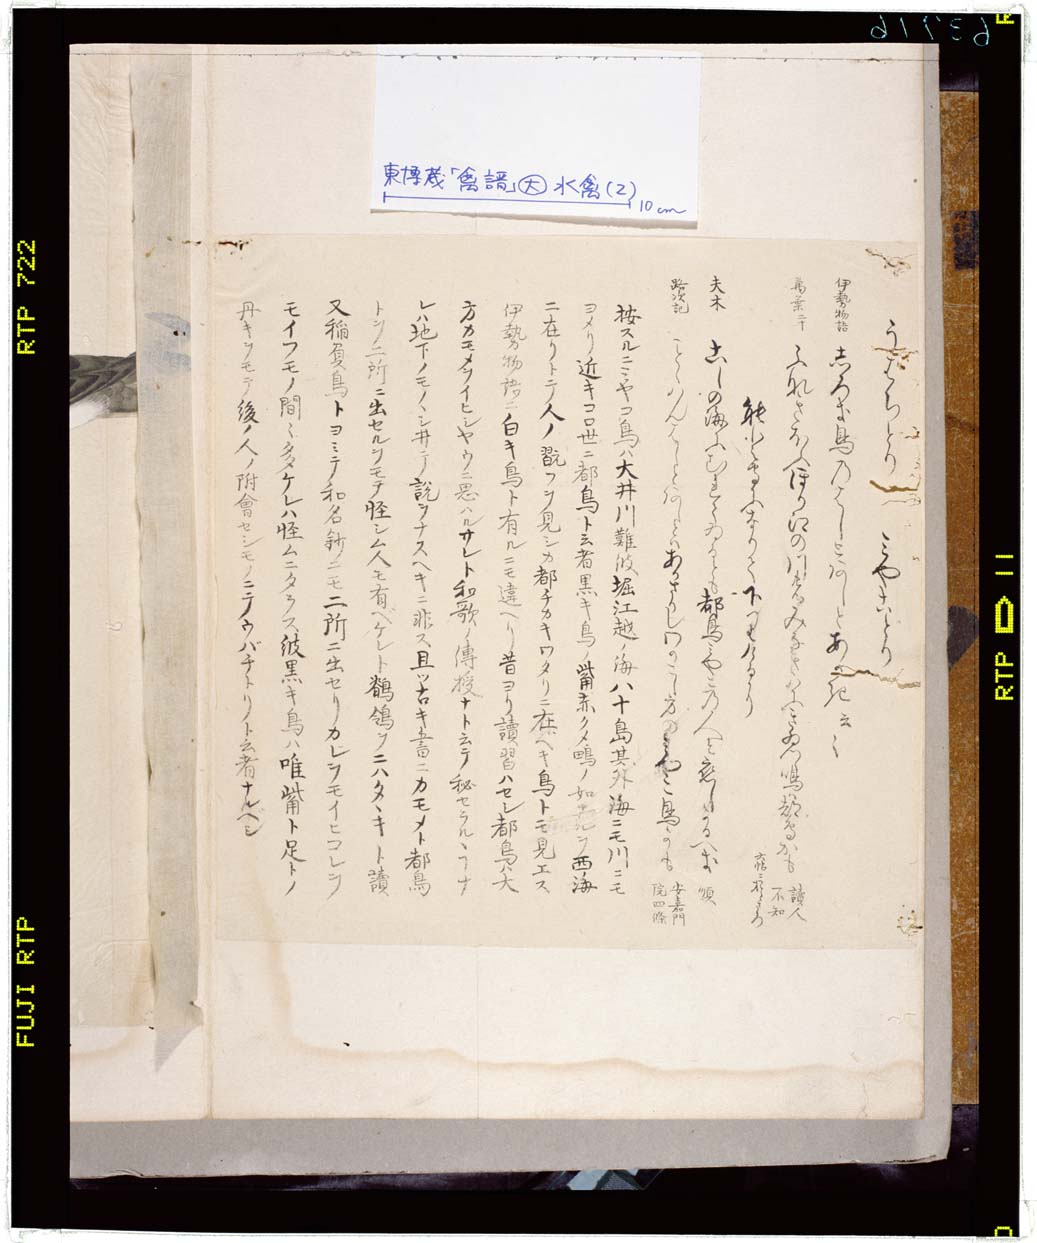 63716
東博蔵「禽譜」大 水禽(2)
10cm
うばちとり みやことり
伊勢物語 しろき鳥のはしとあしとあかき云〻
萬葉二十 ふなきほふ堀江の川のみなきはにきゐつゝ鳴は都鳥かも 讀人不知
夫木 こしの海にむれてゐるとも都鳥みやこの人を恋しかるへき 順
路次記 ことゝはんはしとあしとはあかさりしわかこし方のみやこ鳥かも 安嘉門院四條
按スルニミヤコ鳥ハ大井川難波堀江越ノ海八十島其外海ニモ川ニモ
ヨメリ近キコロ世ニ都鳥ト云者黒キ鳥ノ觜赤ク鴫ノ如ナルヲ西海
ニ在リトテ人ノ翫フヲ見シカ都チカキワタリニ在ベキ鳥トモ見エス
伊勢物語ニ白キ鳥ト有ルニモ違ヘリ昔ヨリ讀習ハセシ都鳥ハ大
方カモメヲイヒシヤウニ思ハルサレト和歌ノ傳授ナト云テ秘セラルヽヿナ
レハ地下ノモノヽシ井テ説ヲナスヘキニ非ス且ツ古キ書ニカモメト都鳥
トヲ二所ニ出セルヲモチ怪シム人モ有ベケレト鶺鴒ヲニハタヽキト讀
又稲負鳥トヨミテ和名鈔ニモ二所ニ出セリカレヲモイヒコレヲ
モイフモノ間ミタケレハ怪ムニタラス彼黒キ鳥ハ唯觜ト足トノ
丹キヲモテ後ノ人ノ附會セシモノニテウバチトリト云者ナルベシ
RTP 722
FUJI RTP
RTP D 11